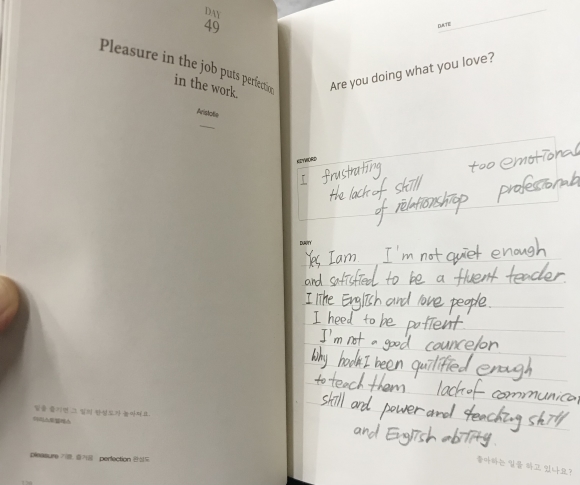 DAY
49
Pleasure in the job puts perfection
in the work.
Aristotle
일을 즐기면 그 일의 완성도가 높아져요.
아리스토텔레스
pleasure 기쁨, 즐거움 perfection 완성도
DATE
Are you doing what you love?
KEYWORD
I frustrating too emotional
the lack of skill professional
of relationshop
DIARY
Yes, I am I'm not quiet enough
and satisfied to be a fluent teacher.
I like English and love people.
I need to be patient.
I'm not a good councelor
Why I been qulified enough
to teach them lack of communica
skill and power and teaching skill
and English ability.
좋아하는 일을 하고 있나요?